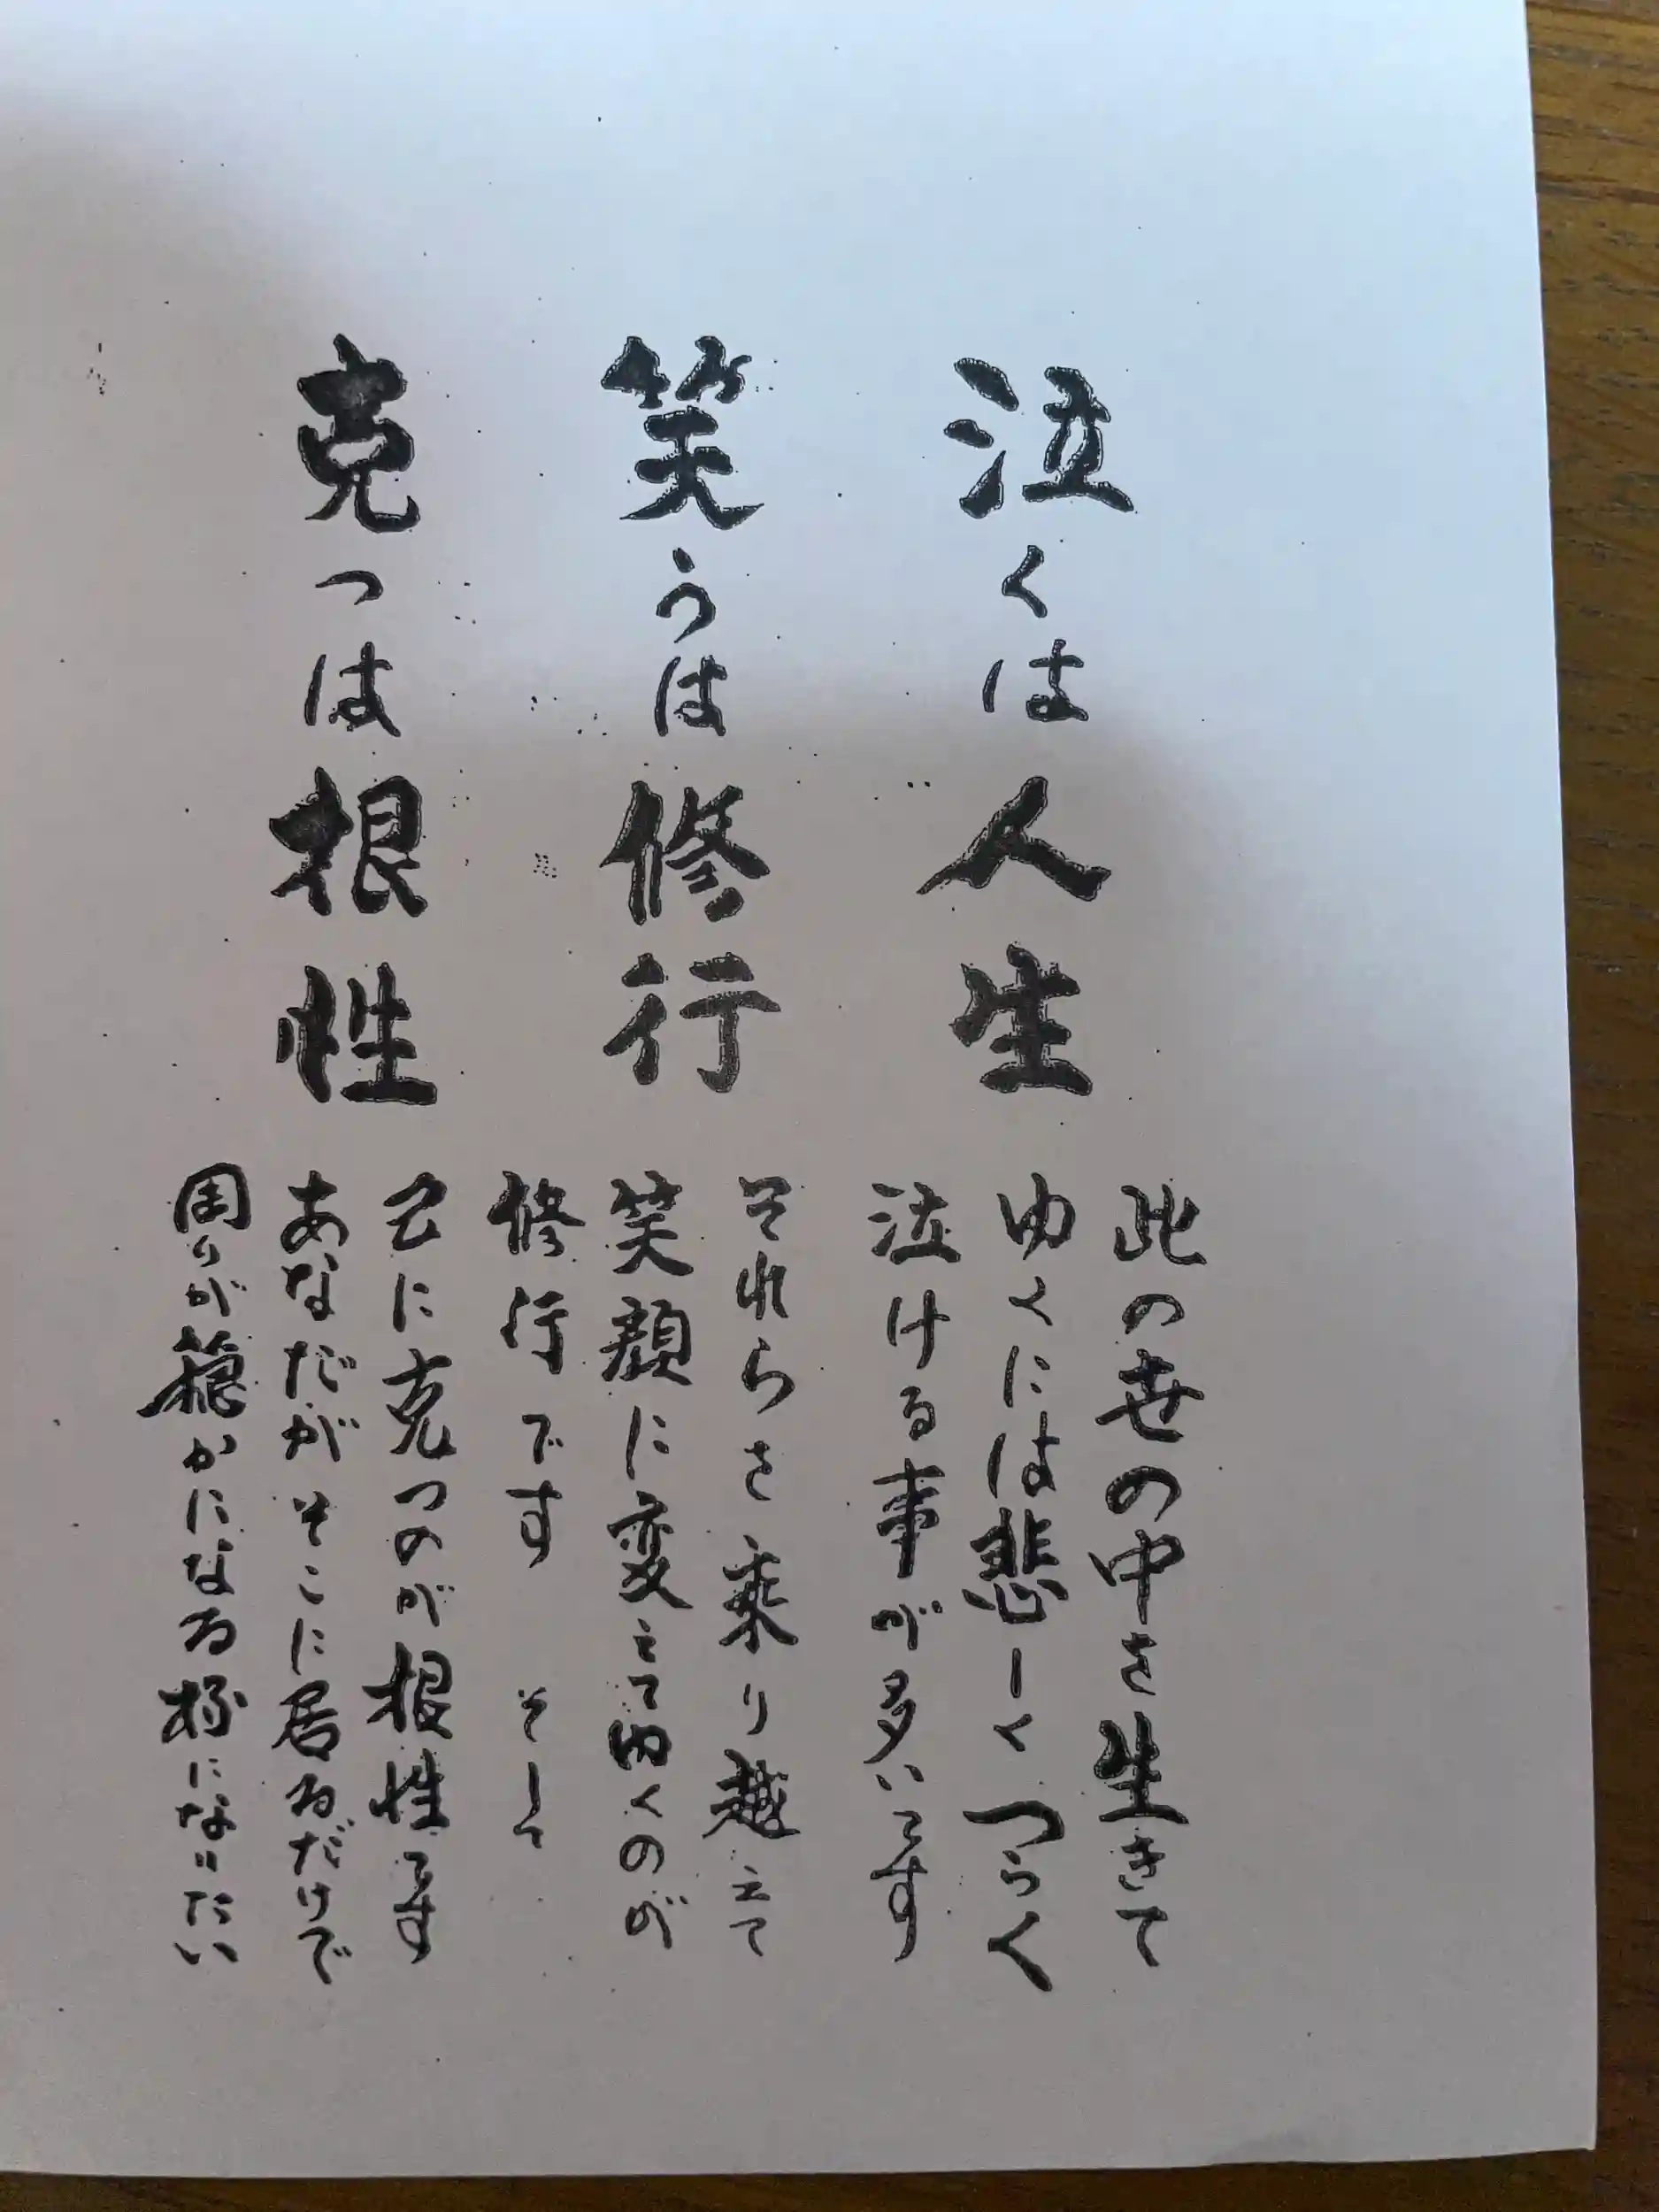 泣くは人生
此の世の中を生きて
ゆくには悲しくつらく
泣ける事が多いです
笑うは修行
それらを乗り越えて
笑顔に変えてゆくのが
修行です そして
克つは根性
己に克つのが根性です
あなたがそこに居るだけで
周りが穏かになる様になりたい